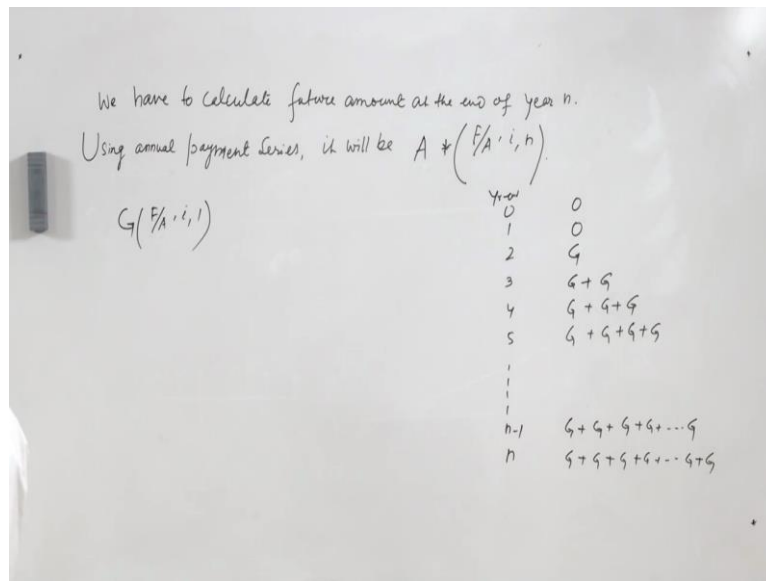 We have to calculate future amount at the end of year n.
Using annual payment series, it will be A * (F/A, i, n).
G(F/A, i, 1)
Yr-end
0 0
1 0
2 G
3 G + G
4 G + G + G
5 G + G + G + G
n-1 G + G + G + G + --- G
n G + G + G + G + -- G + G